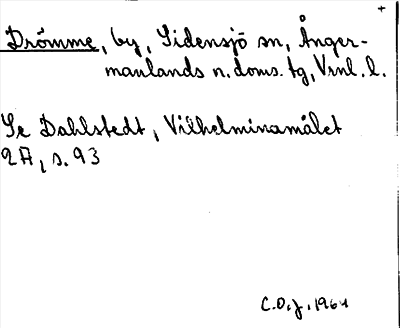 +
Drömme, by, Sidensjö sn, Ånger-
manlands n. doms. tg, Vrnl. l.
Se Dahlstedt, Vilhelminamålet
2A, s. 93
C.O.J. 1964